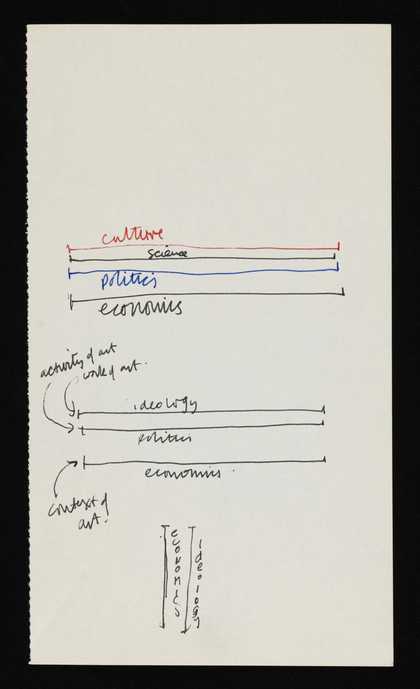 culture
science
politics
economics
activity of art
work of art.
ideology
politics
economics.
context of
art.
economics
ideology